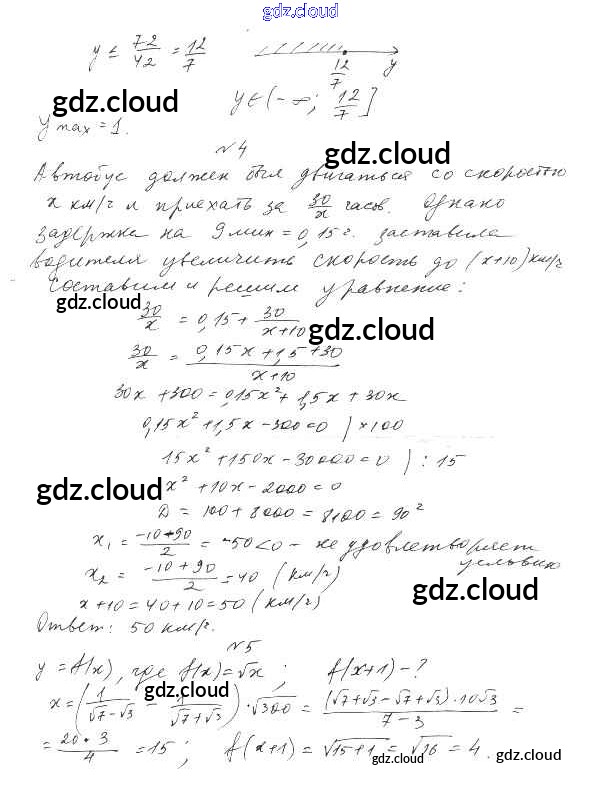 gdz.cloud
y ≤ 7·2/42 = 12/7
12/7 y
y ∈ (-∞; 12/7]
gdz.cloud
y max = 1.
№4
gdz.cloud
Автобус должен был двигаться со скоростью
x км/ч и приехать за 30/x часов. Однако
задержка на 9 мин = 0,15 ч. заставила
водителя увеличить скорость до (x+10) км/ч
Составим и решим уравнение:
gdz.cloud
30/x = 0,15 + 30/(x+10)
gdz.cloud
30/x = (0,15x + 1,5 + 30)/(x+10)
30x + 300 = 0,15x² + 1,5x + 30x
0,15x² + 1,5x - 300 = 0 ) ×100
15x² + 150x - 30000 = 0 ) : 15
gdz.cloud
x² + 10x - 2000 = 0
D = 100 + 8000 = 8100 = 90²
x₁ = (-10+90)/2 = -50 < 0 - не удовлетворяет условию
x₂ = (-10+90)/2 = 40 (км/ч)
gdz.cloud
x+10 = 40+10 = 50 (км/ч)
Ответ: 50 км/ч.
№5
y = f(x), где f(x) = √x ; f(x+1) - ?
gdz.cloud
x = (1/(√7-√3) - 1/(√7+√3)) · √300 = ((√7+√3-√7+√3)·10√3)/(7-3) =
= 20·3/4 = 15; f(x+1) = √(15+1) = √16 = 4.
gdz.cloud
gdz.cloud